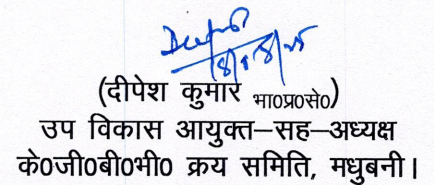 (दीपेश कुमार भा०प्र०से०)
उप विकास आयुक्त–सह–अध्यक्ष
के०जी०बी०भी० क्रय समिति, मधुबनी।